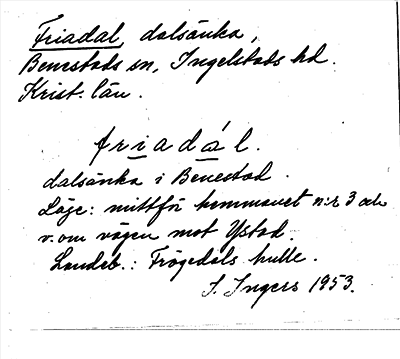 Friadal, dalsänka,
Benestads sn, Ingelstads hd.
Krist. län.
friadál.
dalsänka i Benestad.
Läge: mittför hemmanet n:r 3 och
v. om vägen mot Ystad.
Landeb.: Frögedals kulle.
I. Ingers 1953.